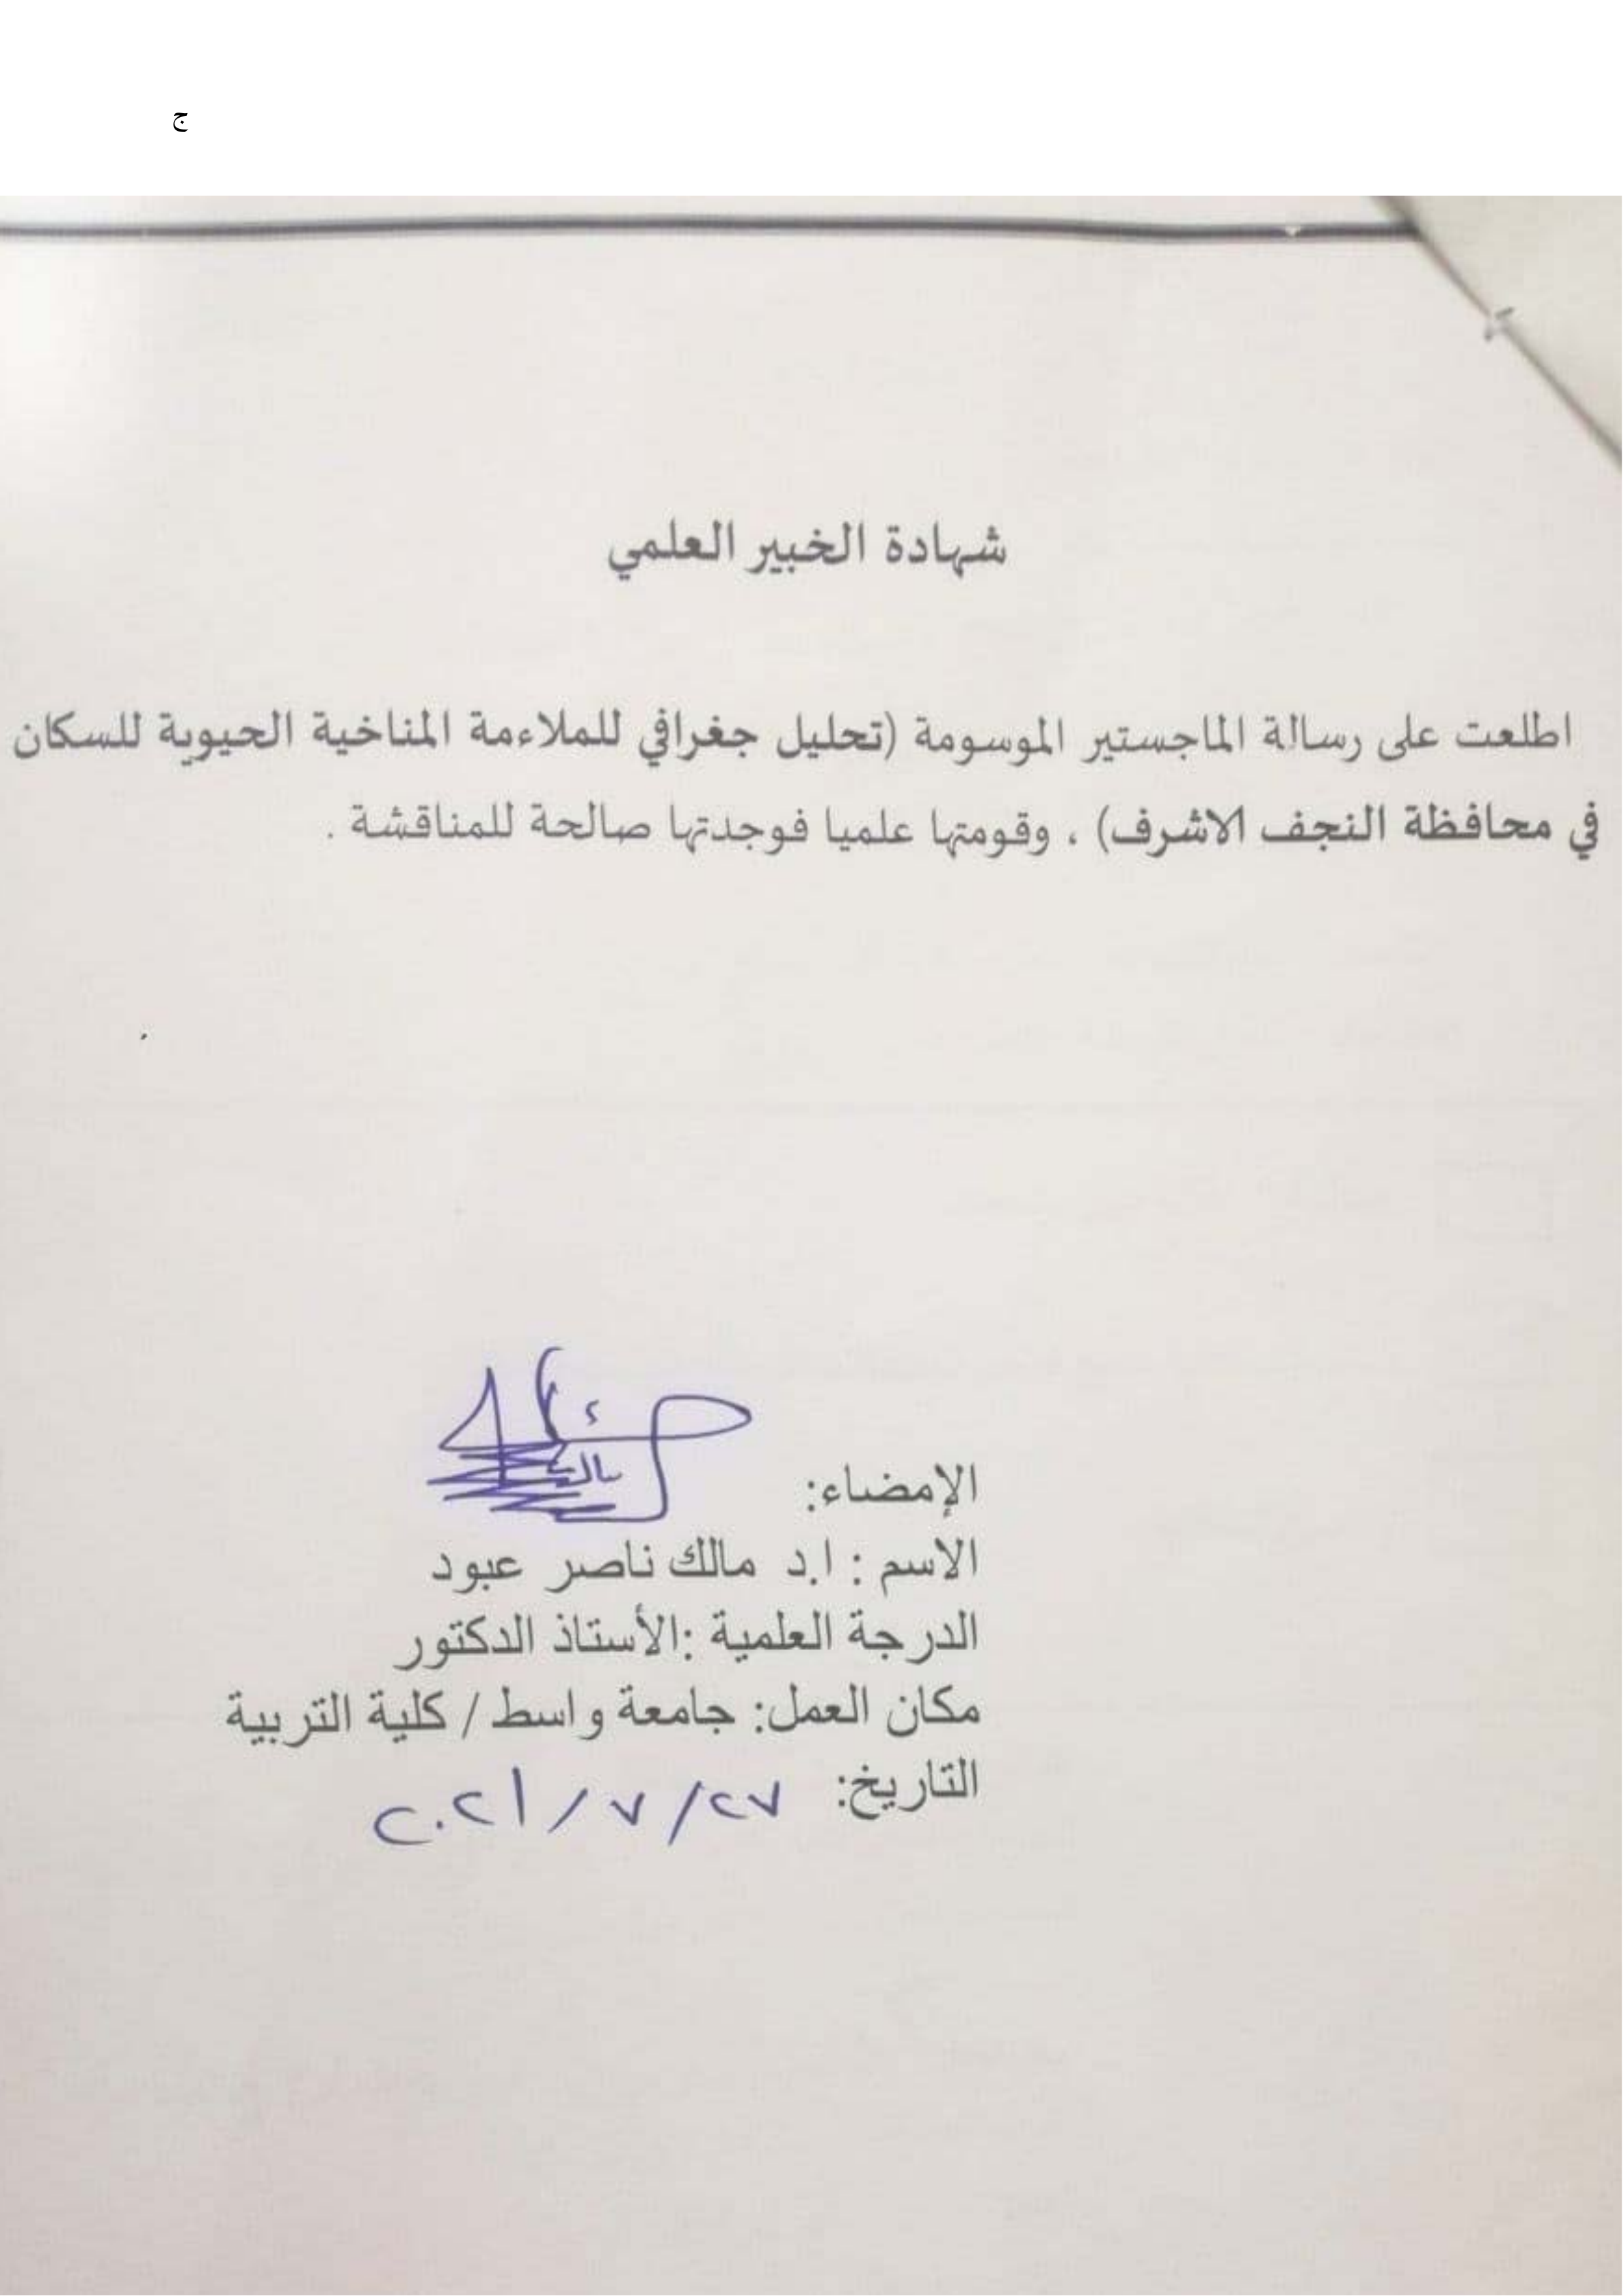 ج
شهادة الخبير العلمي
اطلعت على رسالة الماجستير الموسومة (تحليل جغرافي للملاءمة المناخية الحيوية للسكان
في محافظة النجف الاشرف) . وقومتها علميا فوجدتها صالحة للمناقشة .
الإمضاء:
الاسم : ا.د مالك ناصر عبود
الدرجة العلمية :الأستاذ الدكتور
مكان العمل: جامعة واسط / كلية التربية
التاريخ: ٢٧/ ٧ / ٢٠٢١